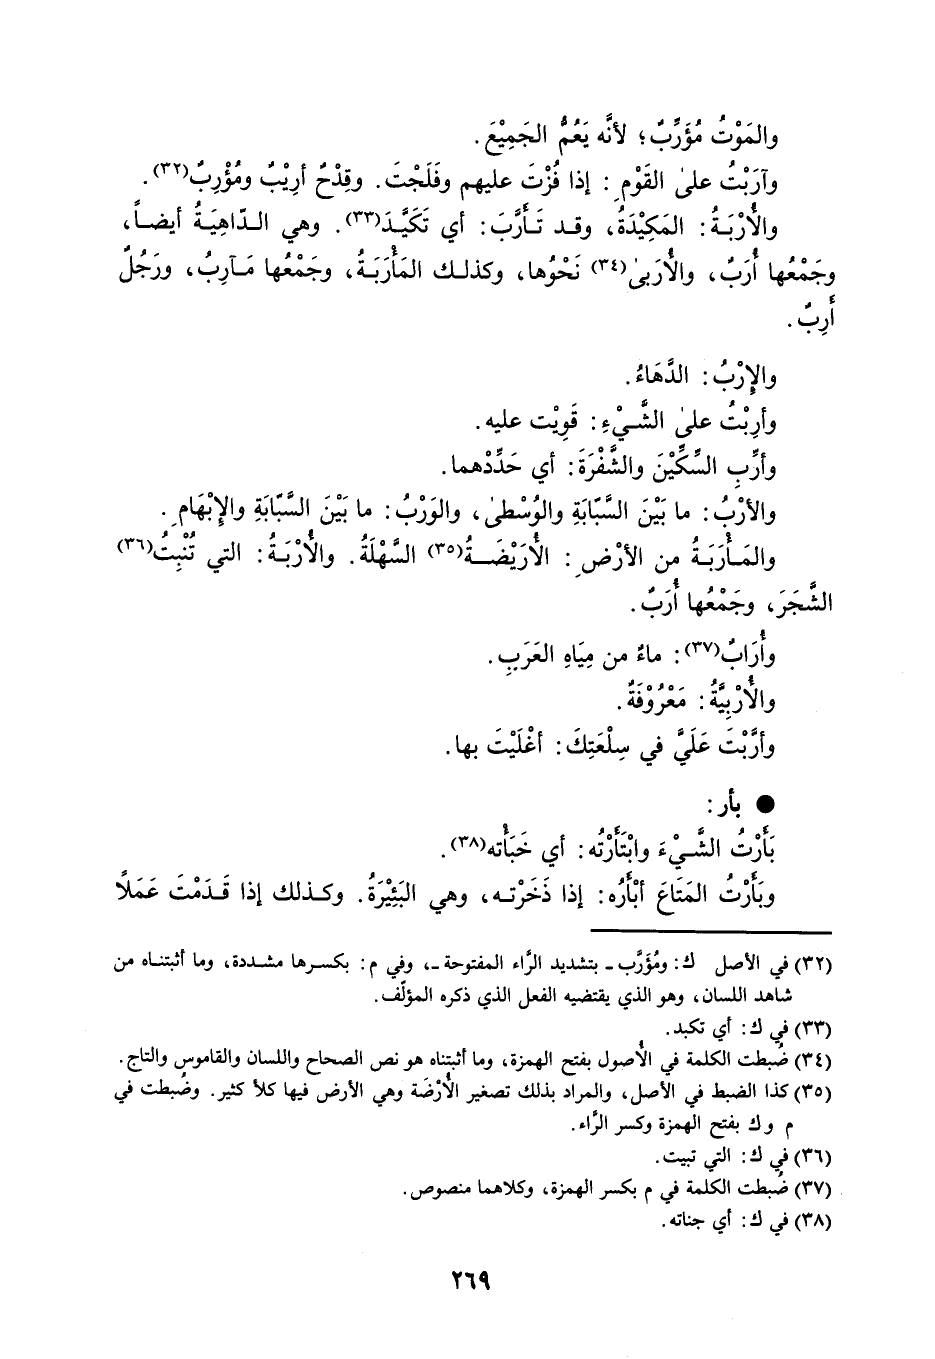 والمَوْتُ مُؤَرِّبٌ؛ لأنَّه يَعُمُّ الجَمِيْعَ.
وآرَبْتُ على القَوْمِ: إذا فُزْتَ عليهم وفَلَجْتَ. وقِدْحٌ أرِيْبٌ ومُؤْرِبٌ(٣٢).
والأُرْبَةُ: المَكِيْدَةُ، وقد تَأَرَّبَ: أي تَكَيَّدَ(٣٣). وهي الدّاهِيَةُ أيضاً،
وجَمْعُها أُرَبٌ، والأُرَبىٰ(٣٤) نَحْوُها، وكذلك المَأْرَبَةُ، وجَمْعُها مَآرِبُ، ورَجُلٌ
أَرِبٌ.
والإِرْبُ: الدَّهَاءُ.
وأرِبْتُ على الشَّيْءِ: قَوِيْت عليه.
وأرِّبِ السِّكِّيْنَ والشَّفْرَةَ: أي حَدِّدْهما.
والأرْبُ: ما بَيْنَ السَّبّابَةِ والوُسْطىٰ، والوَرْبُ: ما بَيْنَ السَّبّابَةِ والإِبْهَامِ.
والمَأْرَبَةُ من الأرْضِ: الأُرَيْضَةُ(٣٥) السَّهْلَةُ. والأُرْبَةُ: التي تُنْبِتُ(٣٦)
الشَّجَرَ، وجَمْعُها أُرَبٌ.
وأُرَابٌ(٣٧): ماءٌ من مِيَاهِ العَرَبِ.
والأُرْبِيَّةُ: مَعْرُوْفَةٌ.
وأرَّبْتَ عَلَيَّ في سِلْعَتِكَ: أغْلَيْتَ بها.
● بأر:
بَأَرْتُ الشَّيْءَ وابْتَأَرْتُه: أي خَبَأْته(٣٨).
وبَأَرْتُ المَتَاعَ أبْأَرُه: إذا ذَخَرْته، وهي البَئِيْرَةُ. وكذلك إذا قَدَمْتَ عَمَلاً
(٣٢) في الأصل ك: ومُؤَرَّب ـ بتشديد الرَّاء المفتوحة ـ، وفي م: بكسرها مشددة، وما أثبتناه من
شاهد اللسان، وهو الذي يقتضيه الفعل الذي ذكره المؤلّف.
(٣٣) في ك: أي تكبد.
(٣٤) ضُبطت الكلمة في الأُصول بفتح الهمزة، وما أثبتناه هو نص الصحاح واللسان والقاموس والتاج.
(٣٥) كذا الضبط في الأصل، والمراد بذلك تصغير الأَرْضَة وهي الأرض فيها كلأ كثير. وضُبطت في
م و ك بفتح الهمزة وكسر الرَّاء.
(٣٦) في ك: التي تبيت.
(٣٧) ضُبطت الكلمة في م بكسر الهمزة، وكلاهما منصوص.
(٣٨) في ك: أي جناته.
٢٦٩